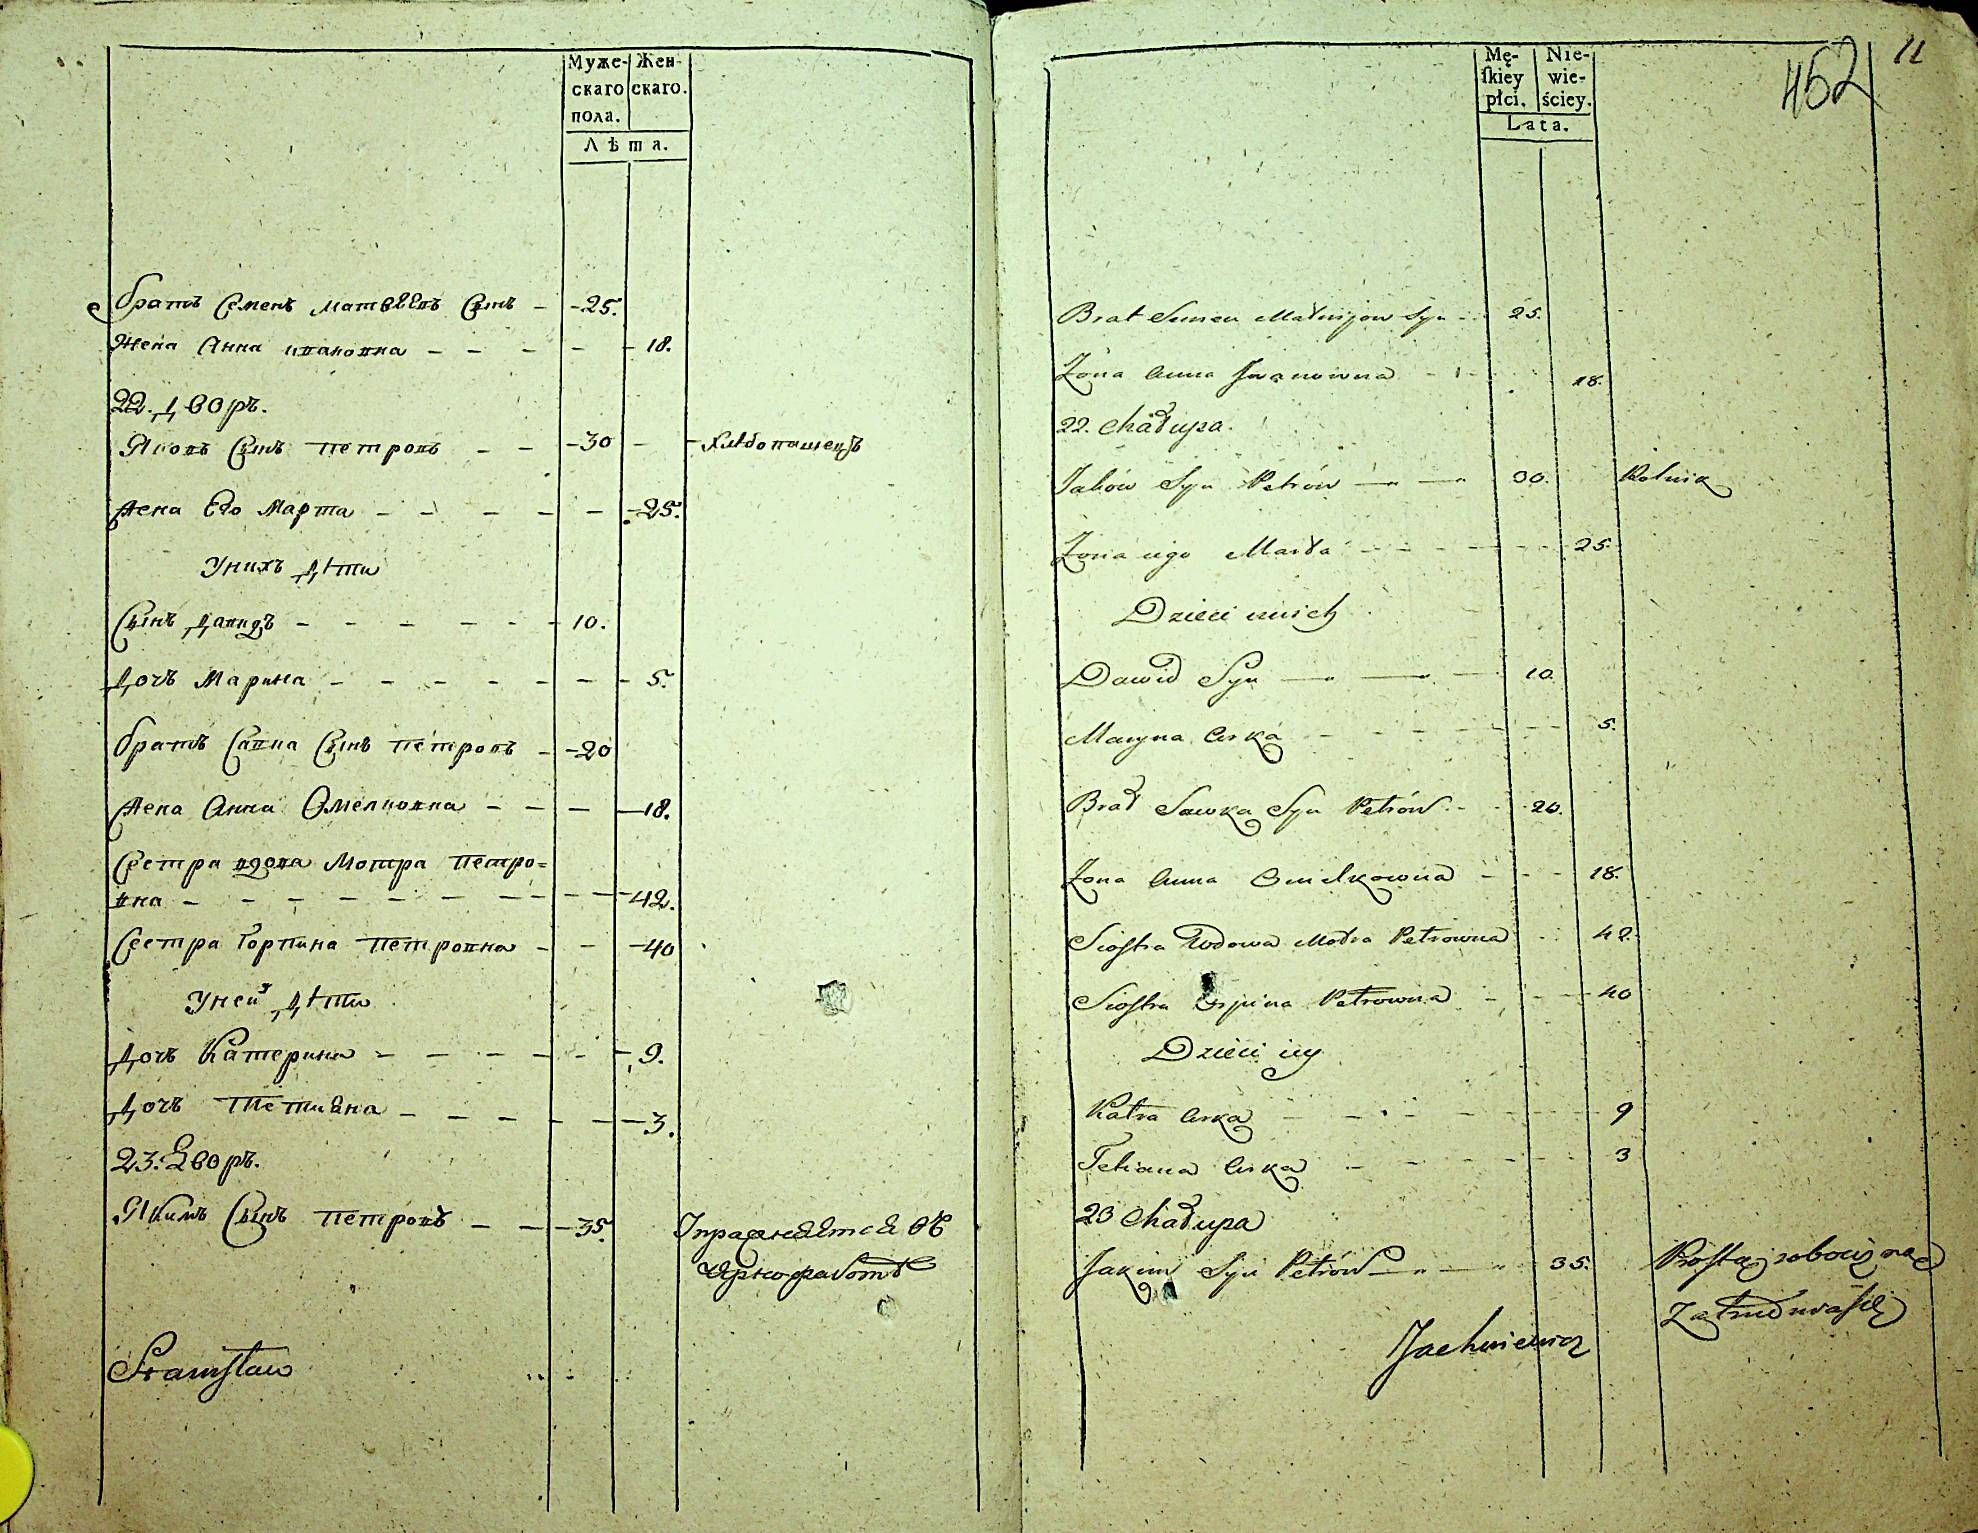 Муже- Жен-
скаго скаго.
пола.
Лѣта.
братъ Семенъ Матвѣевъ Сынъ - - 25.
Жена Анна Ивановна - - - - - 18.
22. дворъ.
Яковъ Сынъ Петровъ - - - 30 - - Хлѣбопашецъ
Жена Его Марта - - - - - - 25.
Унихъ дѣти
Сынъ давидъ - - - - - - 10.
дочъ Марина - - - - - - - 5.
братъ Савка Сынъ Петровъ - - 20
Жена Анна Омелковна - - - - 18.
Сестра вдова Мотра Петро=
вна - - - - - - - - - - 42.
Сестра Горпина Петровна - - - 40
Уней дѣти
дочъ Катерина - - - - - - 9.
дочъ Тетияна - - - - - - 3.
23. Дворъ.
Якимъ Сынъ Петровъ - - - 35. Упражняется въ
Черноработѣ
Stanisław
11
452
Mę- Nie-
ſkiey wie-
płci. ściey.
Lata.
Brat Semen Matwijow Syn - - 25.
Żona Anna Iwanowna - - - 18.
22. Chałupa.
Jaków Syn Petrów - - 30. Rolnik
Żona iego Marta - - - - - - 25.
Dzieci unich
Dawid Syn - - - 10.
Maryna Curka - - - - - - 5.
Brat Sawka Syn Petrów - - 20.
Żona Anna Omelkowna - - - 18.
Siostra Wdowa Motra Petrowna - 42.
Siostra Orpina Petrowna - - - 40
Dzieci iey
Katra Curka - - - - - - 9
Tetiana Curka - - - - - - 3
23 Chałupa
Jakim Syn Petrów - - 35. Prostą robocizną
zatrudnia się
Jachniewicz